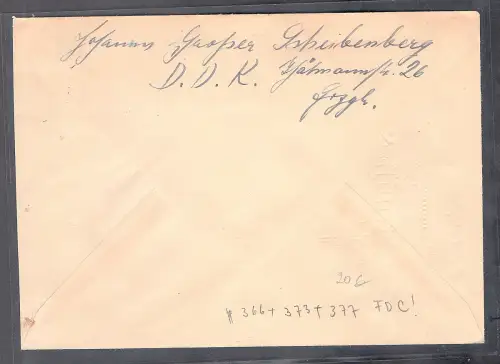 Johann Gasper Scheibenberg
D. D. R. Thälmannstr. 26
Erzgb.
20 €
# 366 + 373 + 377 FDC!